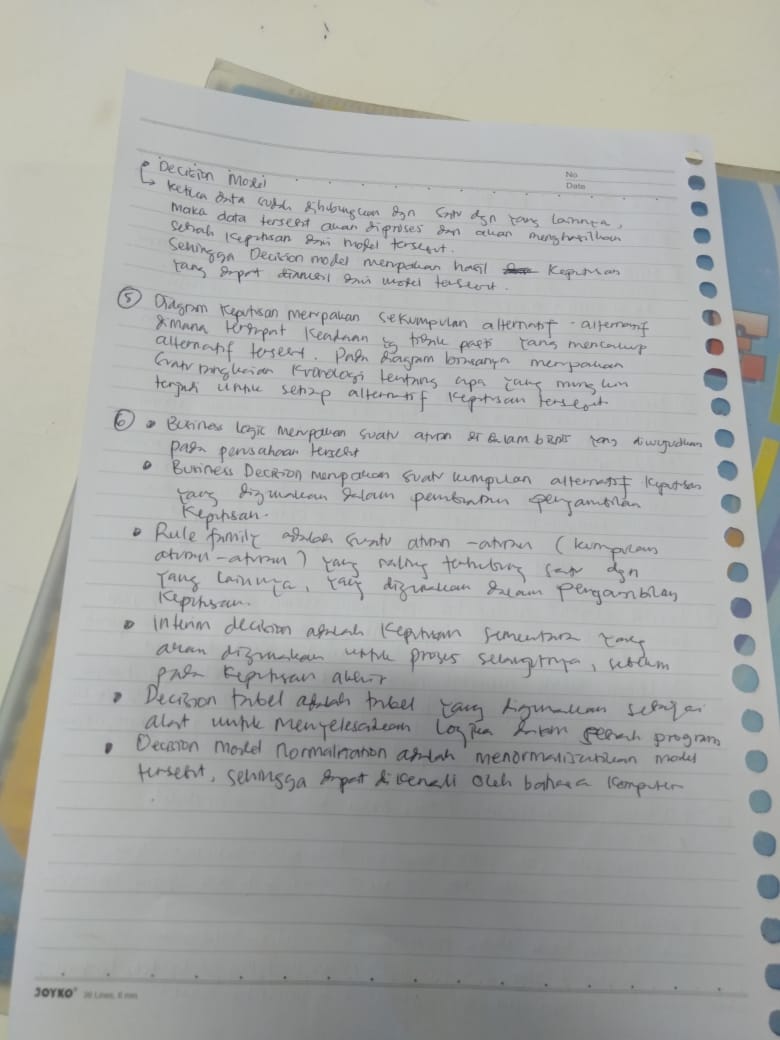 No
Date
• Decision Model
↳ Ketika data sudah dihubungkan dgn satu dgn yang lainnya,
maka data tersebut akan diproses dan akan menghasilkan
sebuah keputusan dari model tersebut.
Sehingga Decision model merupakan hasil keputusan
yang dapat diambil dari model tersebut.
⑤ Diagram Keputusan merupakan sekumpulan alternatif-alternatif
dimana terdapat keadaan yg tidak pasti yang mencakup
alternatif tersebut. Pada diagram biasanya merupakan
suatu rangkaian kronologi tentang apa yang mungkin
terjadi untuk setiap alternatif keputusan tersebut
⑥ • Business logic merupakan suatu aturan di dalam bisnis yang diwujudkan
pada perusahaan tersebut
• Business Decision merupakan suatu kumpulan alternatif keputusan
yang digunakan dalam pengambilan
Keputusan.
• Rule family adalah suatu aturan-aturan (kumpulan
aturan-aturan) yang saling terhubung satu dgn
yang lainnya, yang digunakan dalam pengambilan
Keputusan.
• Interim decision adalah keputusan sementara yang
akan digunakan untuk proses selanjutnya, sebelum
pada keputusan akhir
• Decision tabel adalah tabel yang digunakan sebagai
alat untuk menyelesaikan logika dalam sebuah program
• Decision model normalization adalah menormalisasikan model
tersebut, sehingga dapat dikenali oleh bahasa komputer
JOYKO 26 Lines, 8 mm